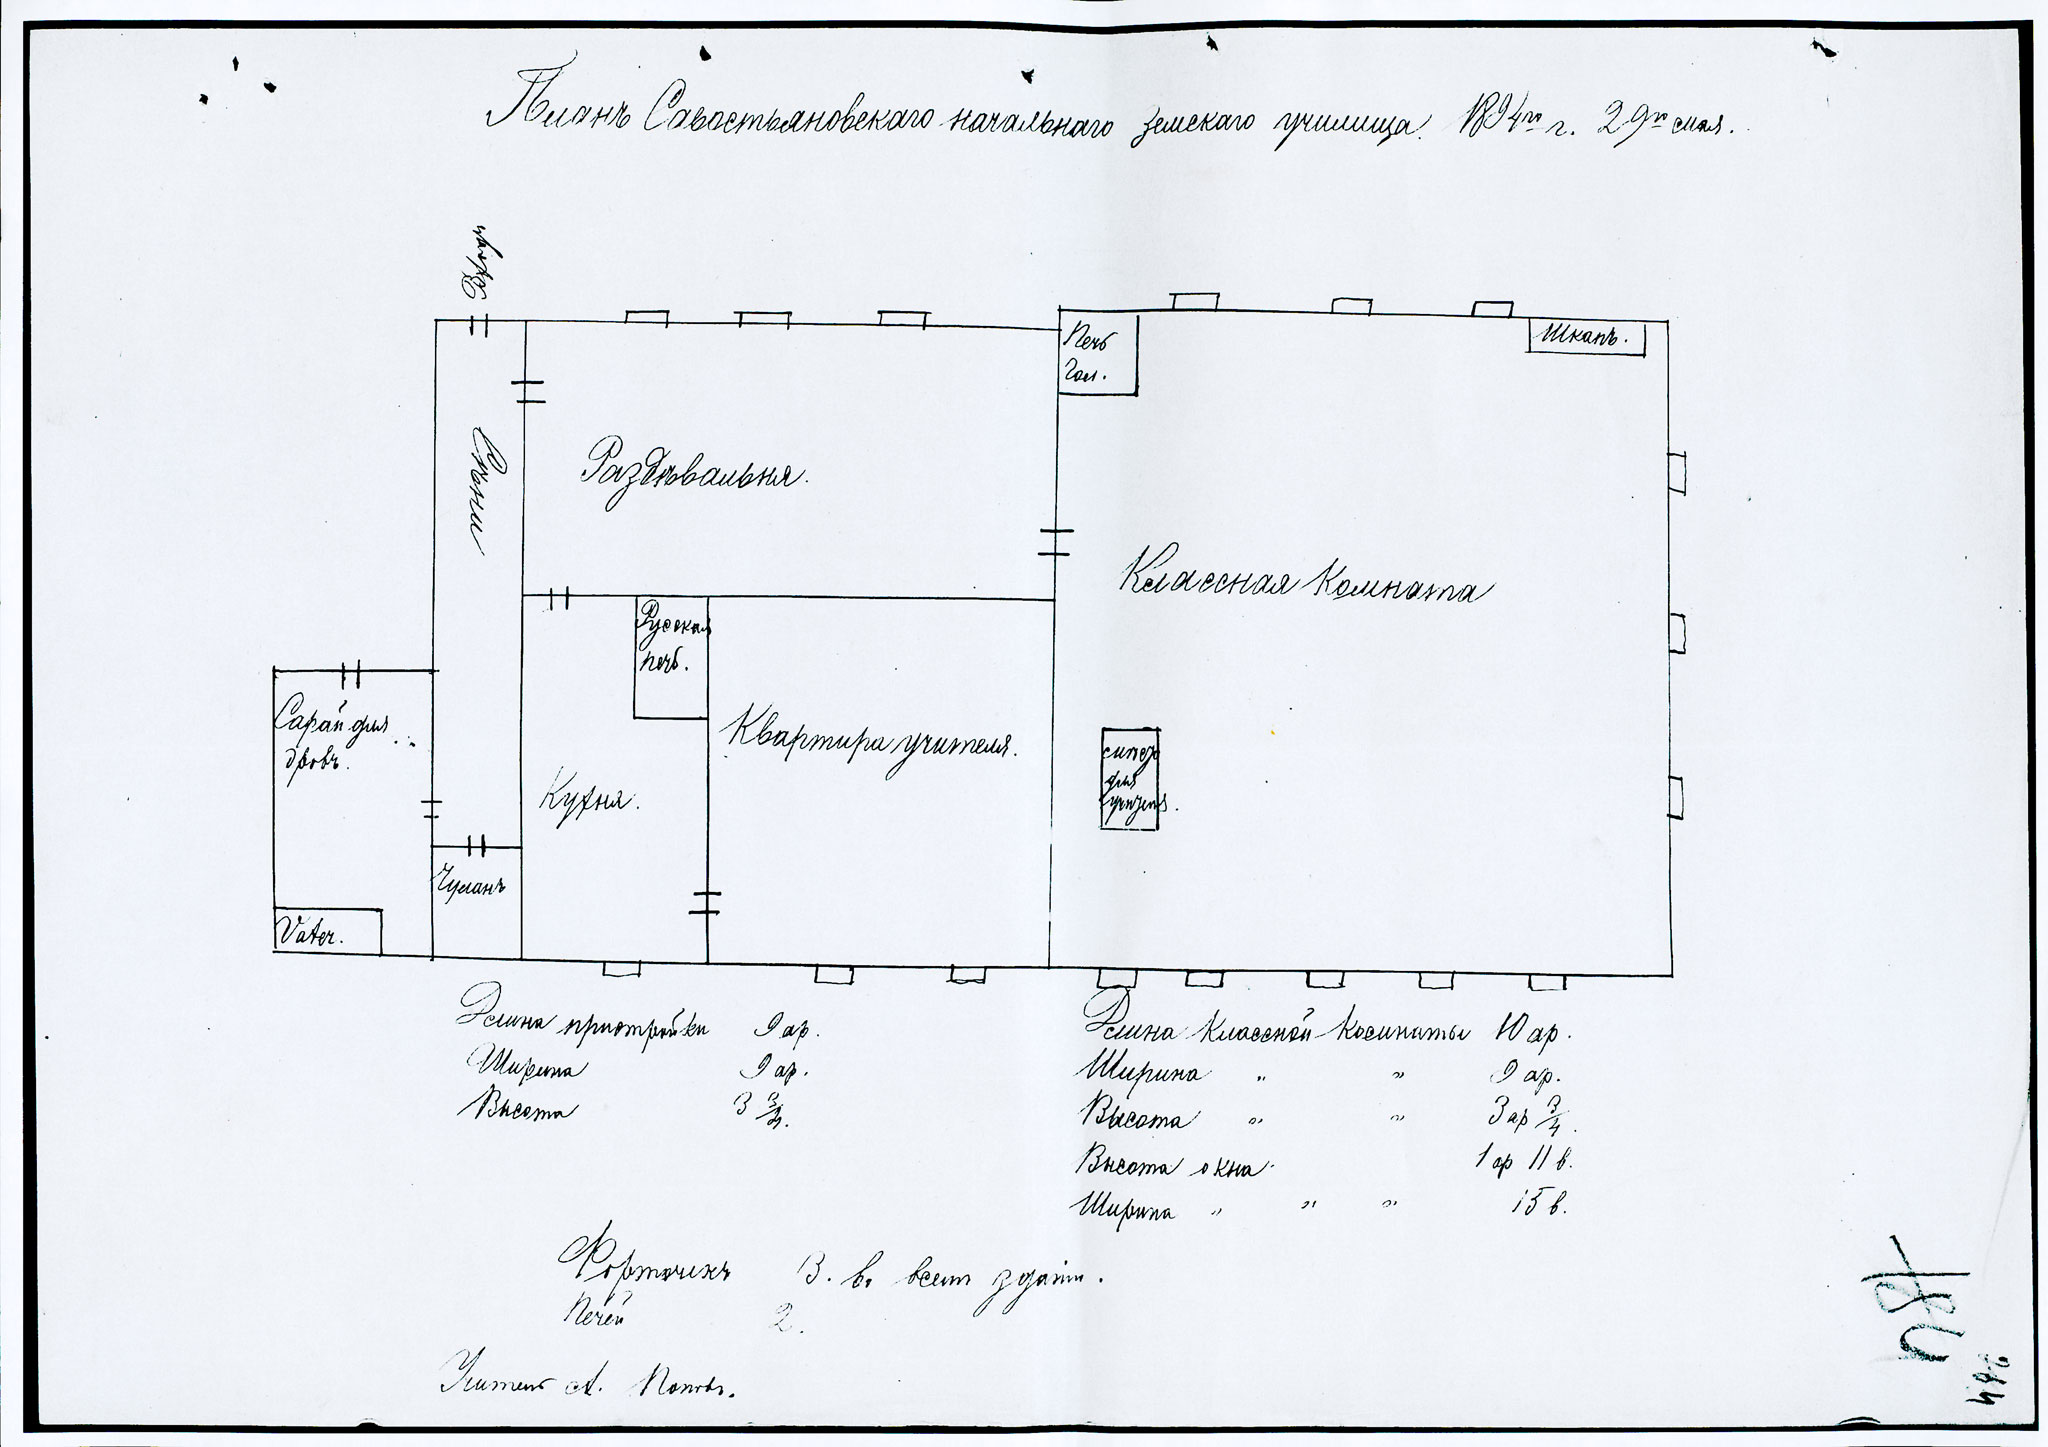 Планъ Савостьяновскаго начальнаго земскаго училища. 1894го г. 29го мая.
Входъ
Печь
Гол.
Шкапъ.
Сѣни
Раздѣвальня.
Классная комната
Русская
печь.
Сарай для
дровъ.
Квартира учителя.
Кухня.
для
Чуланъ
Vater.
Длина пристройки 9 ар.
Ширина 9 ар.
Высота 3 3/4.
Длина классной комнаты 10 ар.
Ширина " " 9 ар.
Высота " " 3 ар 3/4.
Высота окна 1 ар 11 в.
Ширина " " " 15 в.
Форточекъ 3. во всем здании.
Печей 2.
Учитель А. Поповъ.